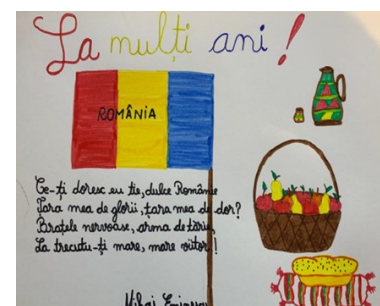 La mulți ani !
ROMÂNIA
Ce-ți doresc eu ție, dulce Românie
Țara mea de glorii, țara mea de dor?
Brațele nervoase, arma de tărie,
La trecutu-ți mare, mare viitor !
Mihai Eminescu